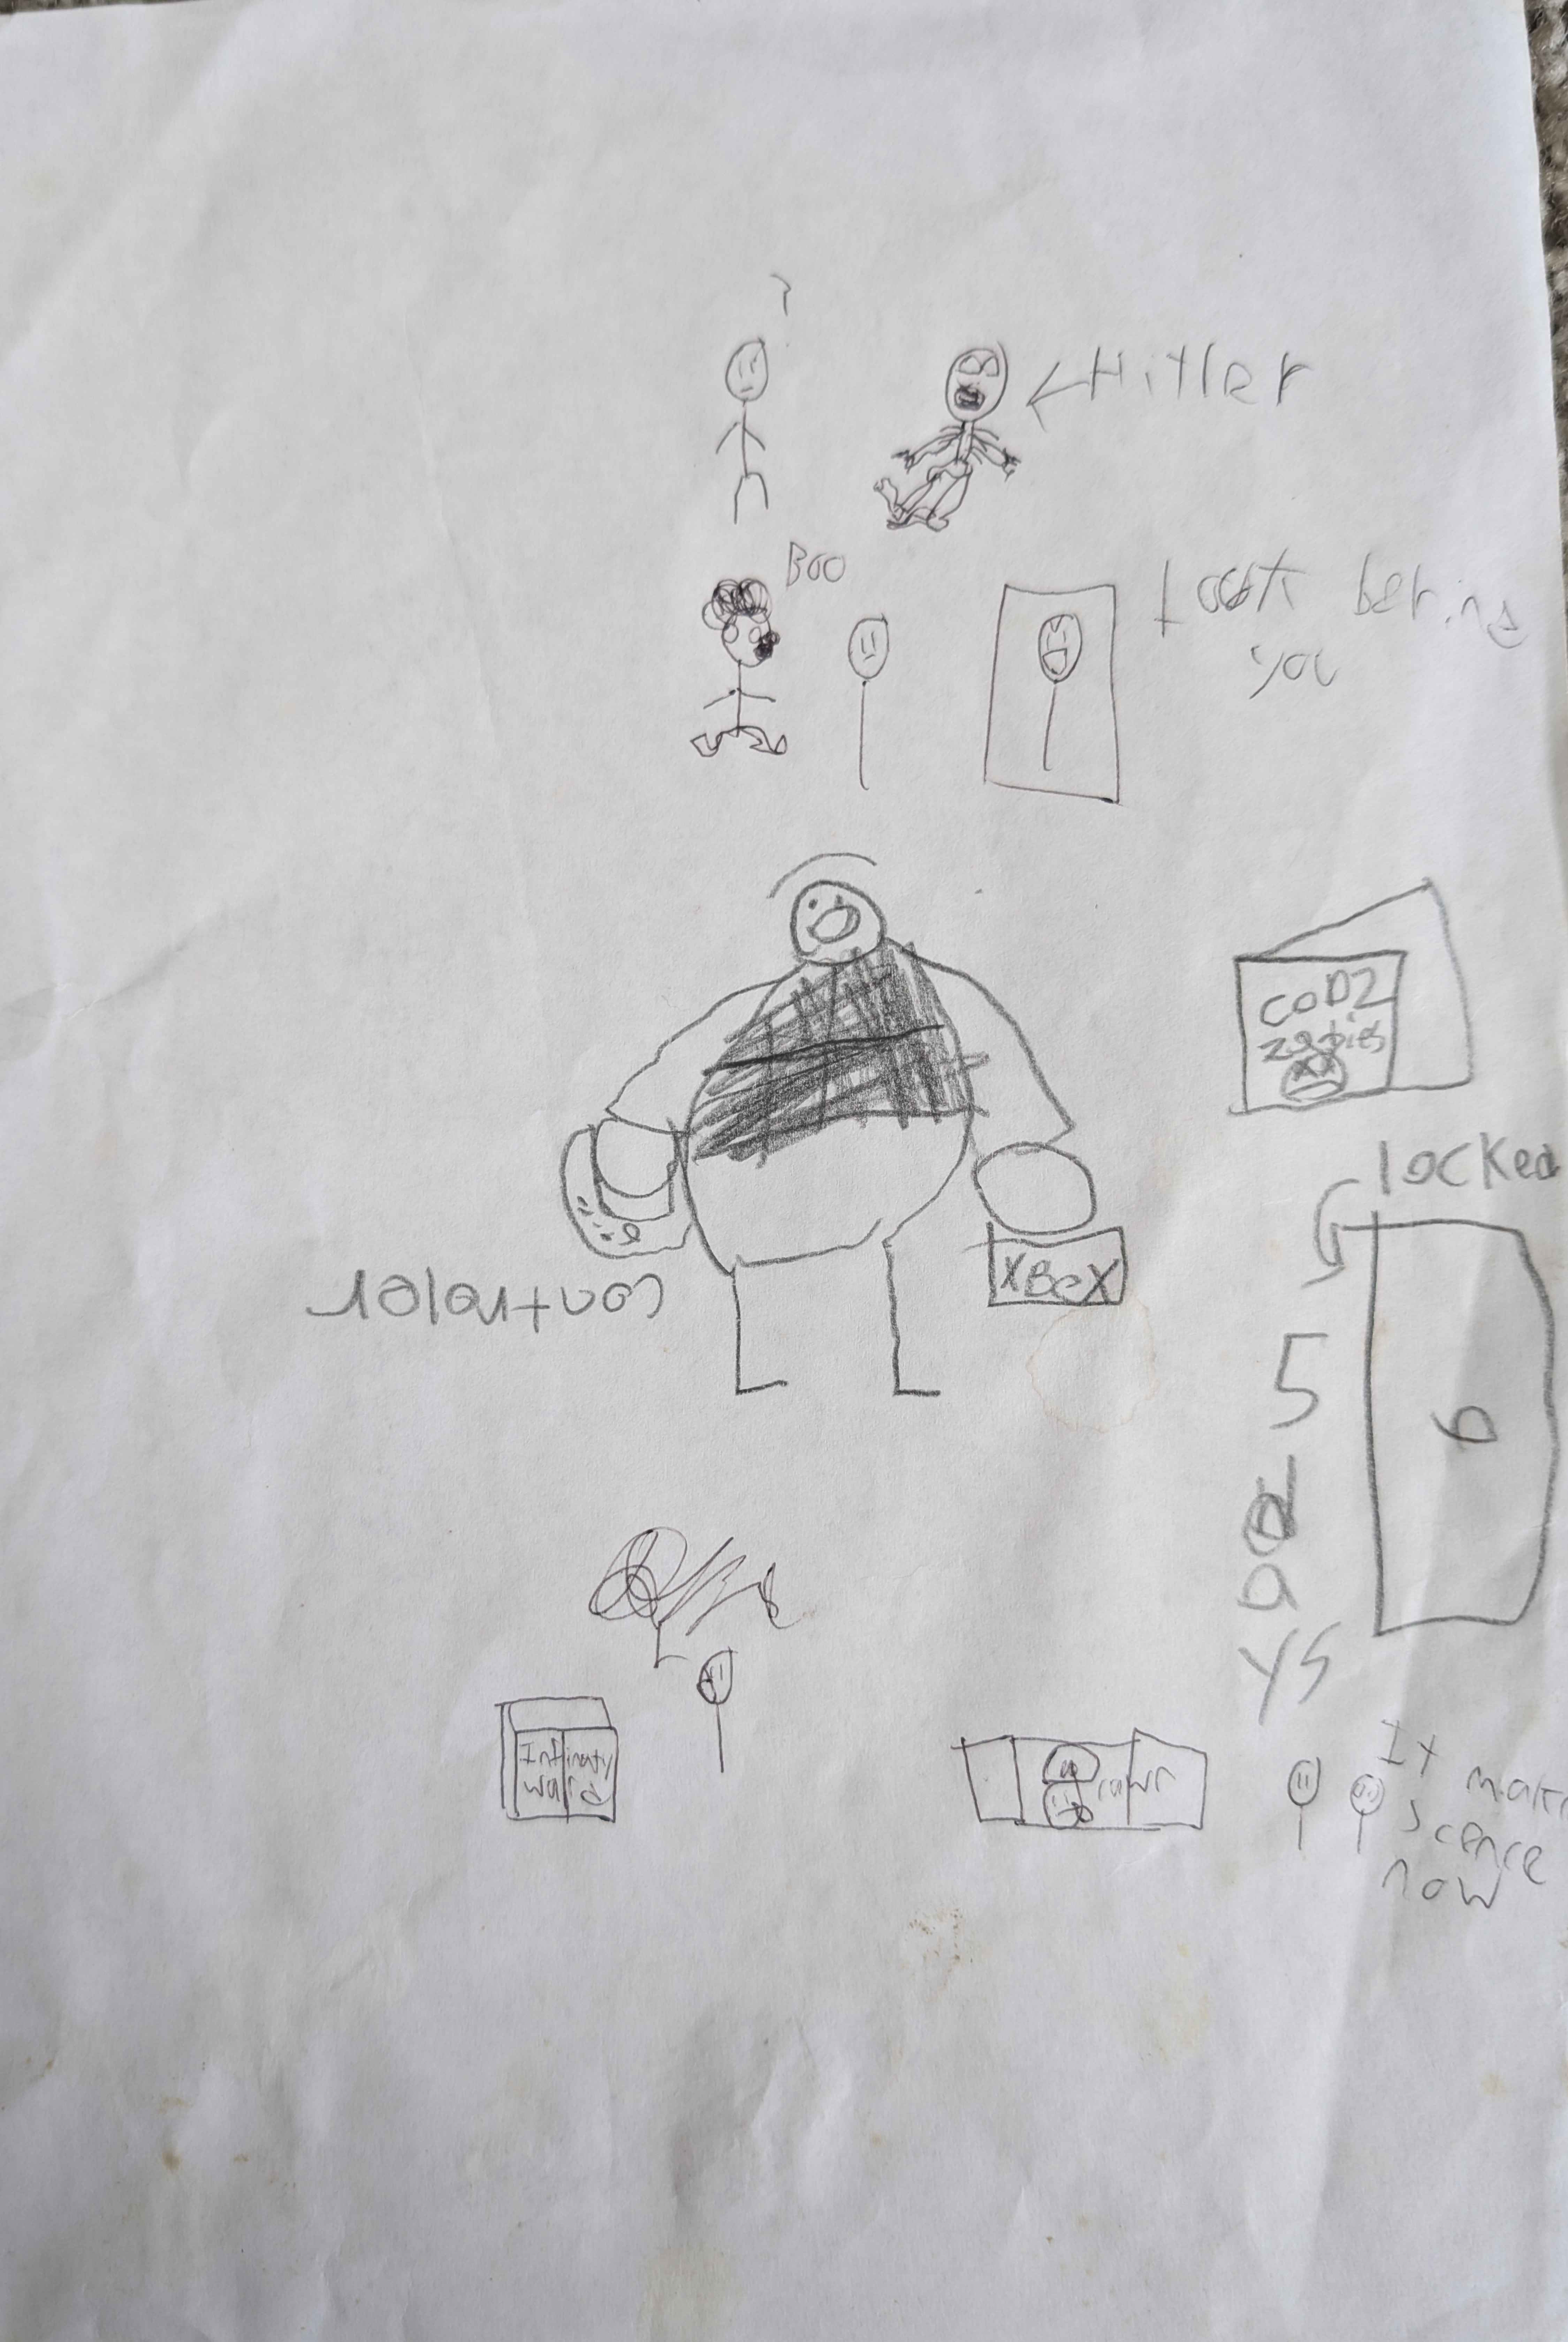 ?
← Hitler
Boo
Look behind
you
COD2
zombies
locked
controler
XBOX
5
days
6
Infinaty
Ward
rawr
It make
scence
now